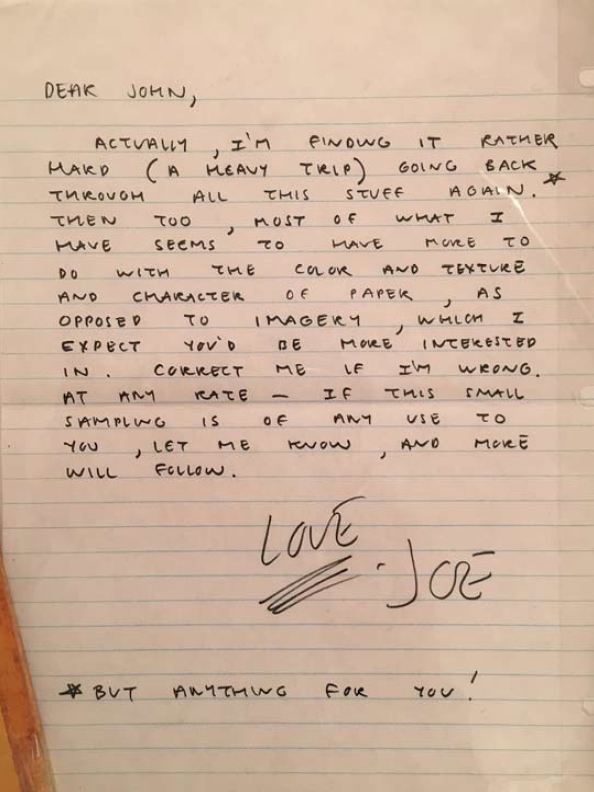 DEAR JOHN,
ACTUALLY, I'M FINDING IT RATHER
HARD (A HEAVY TRIP) GOING BACK
THROUGH ALL THIS STUFF AGAIN.*
THEN TOO, MOST OF WHAT I
HAVE SEEMS TO HAVE MORE TO
DO WITH THE COLOR AND TEXTURE
AND CHARACTER OF PAPER, AS
OPPOSED TO IMAGERY, WHICH I
EXPECT YOU'D BE MORE INTERESTED
IN. CORRECT ME IF I'M WRONG.
AT ANY RATE — IF THIS SMALL
SAMPLING IS OF ANY USE TO
YOU, LET ME KNOW, AND MORE
WILL FOLLOW.
LOVE
·JOE
*BUT ANYTHING FOR YOU!